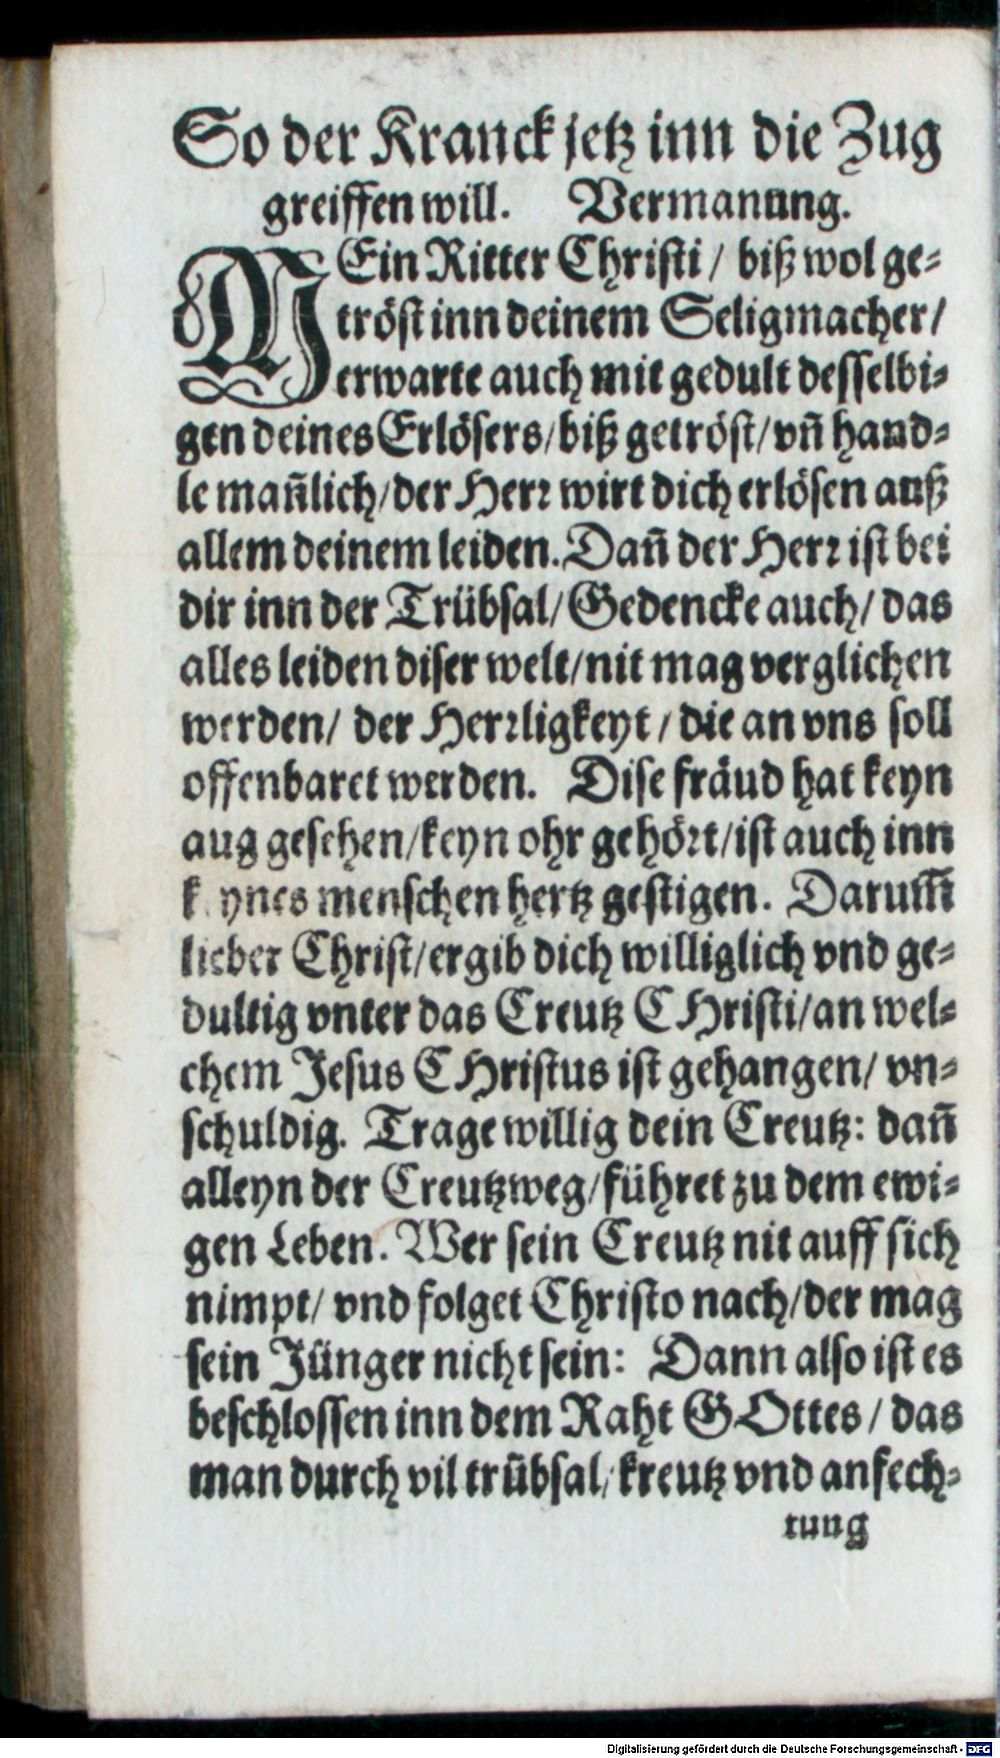 So der Kranck jetz inn die Zug
greiffen will. Vermanung.
MEin Ritter Christi / biß wol ge⸗
tröst inn deinem Seligmacher /
erwarte auch mit gedult desselbi⸗
gen deines Erlösers / biß getröst / vñ hand⸗
le mañlich / der Herr wirt dich erlösen auß
allem deinem leiden. Dañ der Herr ist bei
dir inn der Trübsal / Gedencke auch / das
alles leiden diser welt / nit mag verglichen
werden / der Herrligkeyt / die an vns soll
offenbaret werden. Dise fräud hat keyn
aug gesehen / keyn ohr gehört / ist auch inn
keynes menschen hertz gestigen. Darum̃
lieber Christ / ergib dich williglich vnd ge⸗
dultig vnter das Creutz CHristi / an wel⸗
chem Jesus CHristus ist gehangen / vn⸗
schuldig. Trage willig dein Creutz: dañ
alleyn der Creutzweg / führet zu dem ewi⸗
gen Leben. Wer sein Creutz nit auff sich
nimpt / vnd folget Christo nach / der mag
sein Jünger nicht sein: Dann also ist es
beschlossen inn dem Raht GOttes / das
man durch vil trübsal / kreutz vnd anfech⸗
tung
Digitalisierung gefördert durch die Deutsche Forschungsgemeinschaft - DFG